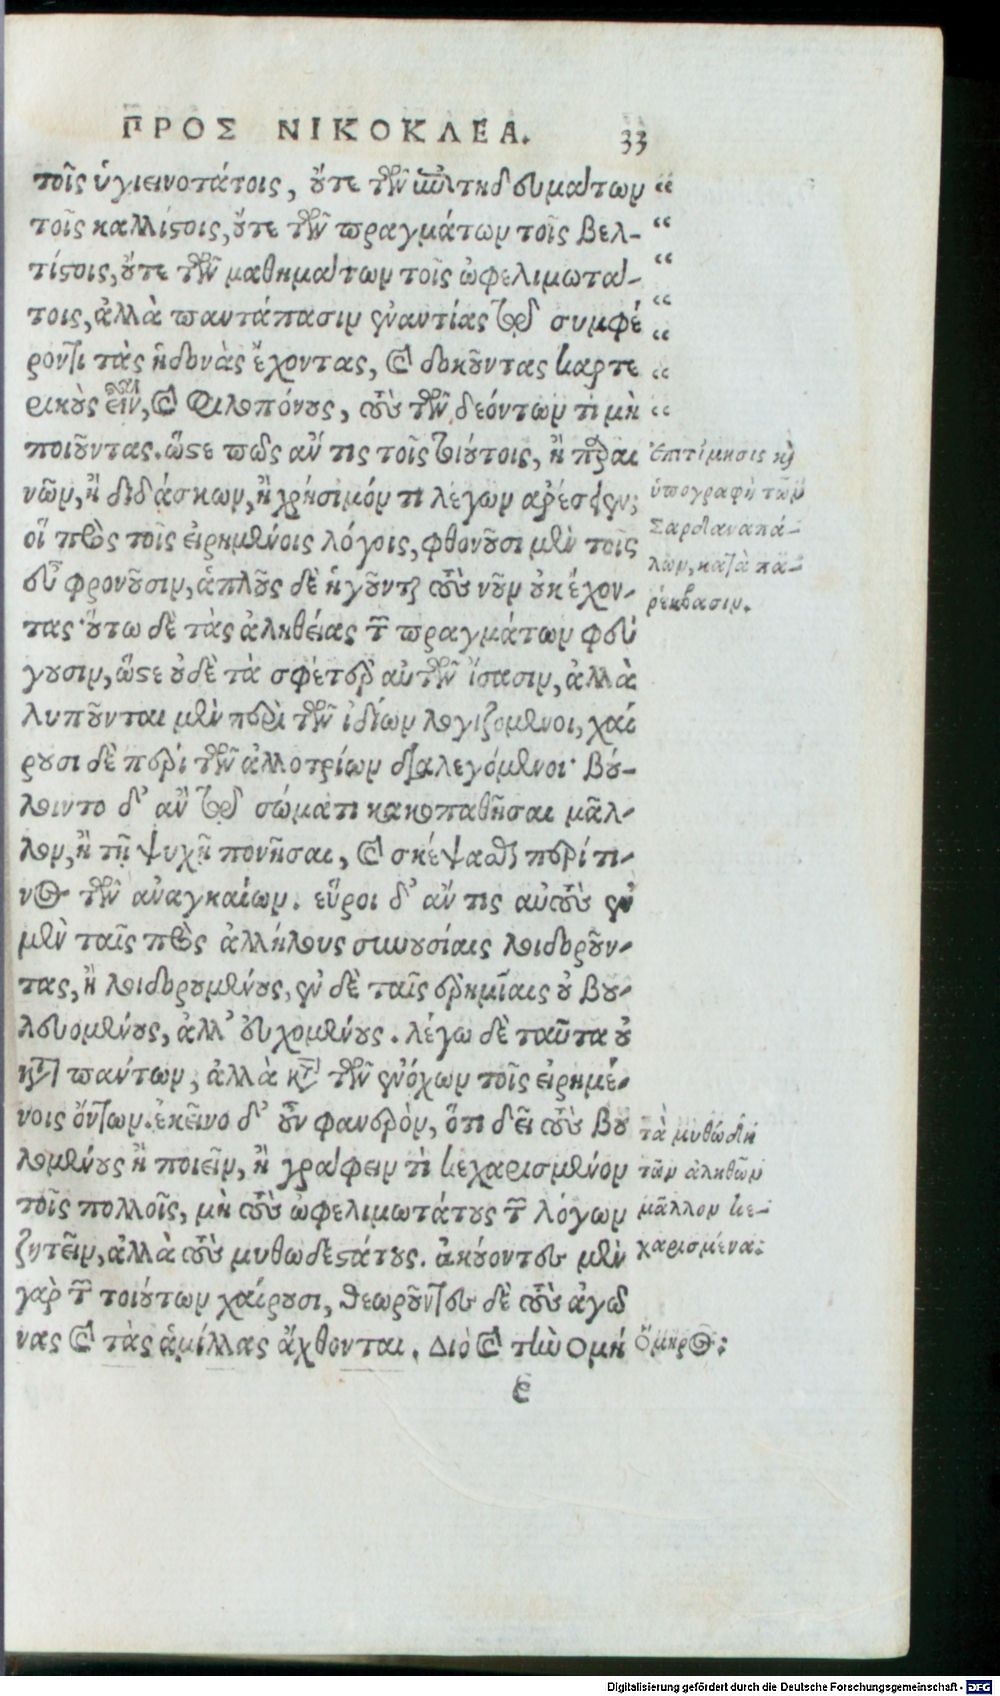 ΠΡΟΣ ΝΙΚΟΚΛΕΑ. 33
τοῖς ὑγιεινοτάτοις, ὄτε τῶν ἐπιτηδευμάτων “
τοῖς καλλίστοις, ὄτε τῶν πραγμάτων τοῖς βελ- “
τίστοις, ὄτε τῶν μαθημάτων τοῖς ὠφελιμωτά- “
τοις, ἀλλὰ παντάπασιν ἐναντίας τῷ συμφέ “
ροντι τὰς ἡδονὰς ἔχοντας, καὶ δοκοῦντας καρτε “
ρικοὺς εἶναι, καὶ φιλοπόνους, τοὺς τῶν δεόντων τι μὴ “
ποιοῦντας. ὥστε πῶς ἄν τις τοῖς τοιούτοις, ἢ παραι
νῶν, ἢ διδάσκων, ἢ χρήσιμόν τι λέγων ἀρέσειεν;
οἳ πρὸς τοῖς εἰρημένοις λόγοις, φθονοῦσι μὲν τοῖς
εὖ φρονοῦσιν, ἁπλοῦς δὲ ἡγοῦνται τοὺς νοῦν οὐκ ἔχον-
τας· οὕτω δὲ τὰς ἀληθείας τῶν πραγμάτων φεύ
γουσιν, ὥστε οὐδὲ τὰ σφέτερα αὐτῶν ἴσασιν, ἀλλὰ
λυποῦνται μὲν περὶ τῶν ἰδίων λογιζόμενοι, χαί
ρουσι δὲ περὶ τῶν ἀλλοτρίων διαλεγόμενοι· βού-
λοιντο δ’ ἂν τῷ σώματι κακοπαθῆσαι μᾶλ-
λον, ἢ τῇ ψυχῇ πονῆσαι, καὶ σκέψασθαι περί τι-
νος τῶν ἀναγκαίων. εὕροι δ’ ἄν τις αὐτοὺς ἐν
μὲν ταῖς πρὸς ἀλλήλους συνουσίαις λοιδοροῦν-
τας, ἢ λοιδορουμένους, ἐν δὲ ταῖς ἐρημίαις οὐ βου-
λευομένους, ἀλλ’ εὐχομένους. λέγω δὲ ταῦτα οὐ
κατὰ πάντων, ἀλλὰ κατὰ τῶν ἐνόχων τοῖς εἰρημέ-
νοις ὄντων. ἐκεῖνο δ’ οὖν φανερὸν, ὅτι δεῖ τοὺς βου
λομένους ἢ ποιεῖν, ἢ γράφειν τὶ κεχαρισμένον
τοῖς πολλοῖς, μὴ τοὺς ὠφελιμωτάτους τῶν λόγων
ζητεῖν, ἀλλὰ τοὺς μυθωδεστάτους. ἀκούοντες μὲν
γὰρ τῶν τοιούτων χαίρουσι, θεωροῦντες δὲ τοὺς ἀγῶ
νας καὶ τὰς ἁμίλλας ἄχθονται. Διὸ καὶ τὴν Ομή
ε
Ἐπιτίμησις καὶ
ὑπογραφὴ τῶν
Σαρδαναπά-
λων, κατὰ πα-
ρέκβασιν.
τὰ μυθώδη
τῶν ἀληθῶν
μᾶλλον κε-
χαρισμένα:
Ὅμηρος:
Digitalisierung gefördert durch die Deutsche Forschungsgemeinschaft - DFG